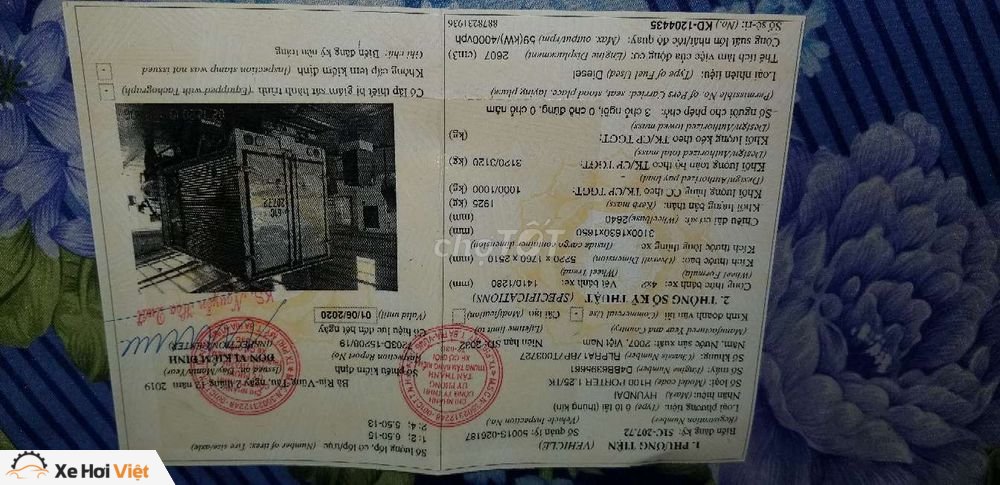 1. PHƯƠNG TIỆN (VEHICLE)
Biển đăng ký: 51C-207.72 Số quản lý: 5001S-026187
(Registration Number) (Vehicle Inspection No.)
Loại phương tiện: (Type) Ô tô tải (thùng kín)
Nhãn hiệu: (Mark) HYUNDAI
Số loại: (Model code) H100 PORTER 1.25/TK
Số máy: (Engine Number)
Số khung: (Chassis Number)
Năm, Nước sản xuất: 2007, Việt Nam Niên hạn SD: 2032
(Manufactured Year and Country) (Lifetime limit to)
Kinh doanh vận tải (Commercial Use) Cải tạo (Modification)
2. THÔNG SỐ KỸ THUẬT (SPECIFICATIONS)
Công thức bánh xe: 4x2 Vết bánh xe: 1410/1280 (mm)
(Wheel Formula) (Wheel Tread)
Kích thước bao: (Overall Dimension) 5220 x 1760 x 2510 (mm)
Kích thước lòng thùng xe (Inside cargo container dimension)
3100x1630x1650 (mm)
Chiều dài cơ sở: (Wheelbase) 2640 (mm)
Khối lượng bản thân: (Kerb mass) 1925 (kg)
Khối lượng hàng CC theo TK/CP TGGT: 1000/1000 (kg)
(Design/Authorized pay load)
Khối lượng toàn bộ theo TK/CP TGGT: 3120/3120 (kg)
(Design/Authorized total mass)
Khối lượng kéo theo TK/CP TGGT: (kg)
(Design/Authorized towed mass)
Số người cho phép chở: 3 chỗ ngồi, 0 chỗ đứng, 0 chỗ nằm
(Permissible No. of Pers Carried: seat, stood place, laying place)
Loại nhiên liệu: (Type of Fuel Used) Diesel
Thể tích làm việc của động cơ: (Engine Displacement) 2607 (cm3)
Công suất lớn nhất/tốc độ quay: (Max. output/rpm) 59(kW)/4000vph
Số sê-ri: (No.) KD-1204435 8878231936
Số lượng lốp, cỡ lốp/trục (Number of tires; Tire size/axle)
1: 2; 6.50-15
2: 4; 5.50-13
Số phiếu kiểm định
(Inspection Report No)
5002D-15108/19
Có hiệu lực đến hết ngày
(Valid until) 01/06/2020
Bà Rịa-Vũng Tàu, ngày 2 tháng 12 năm 2019
(Issued on: Day/Month/Year)
ĐƠN VỊ KIỂM ĐỊNH
(INSPECTION CENTER)
51C
207.72
Có lắp thiết bị giám sát hành trình (Equipped with Tachograph)
Không cấp tem kiểm định (Inspection stamp was not issued)
Ghi chú: Biển đăng ký nền trắng
chợTỐT
Xe Hơi Việt